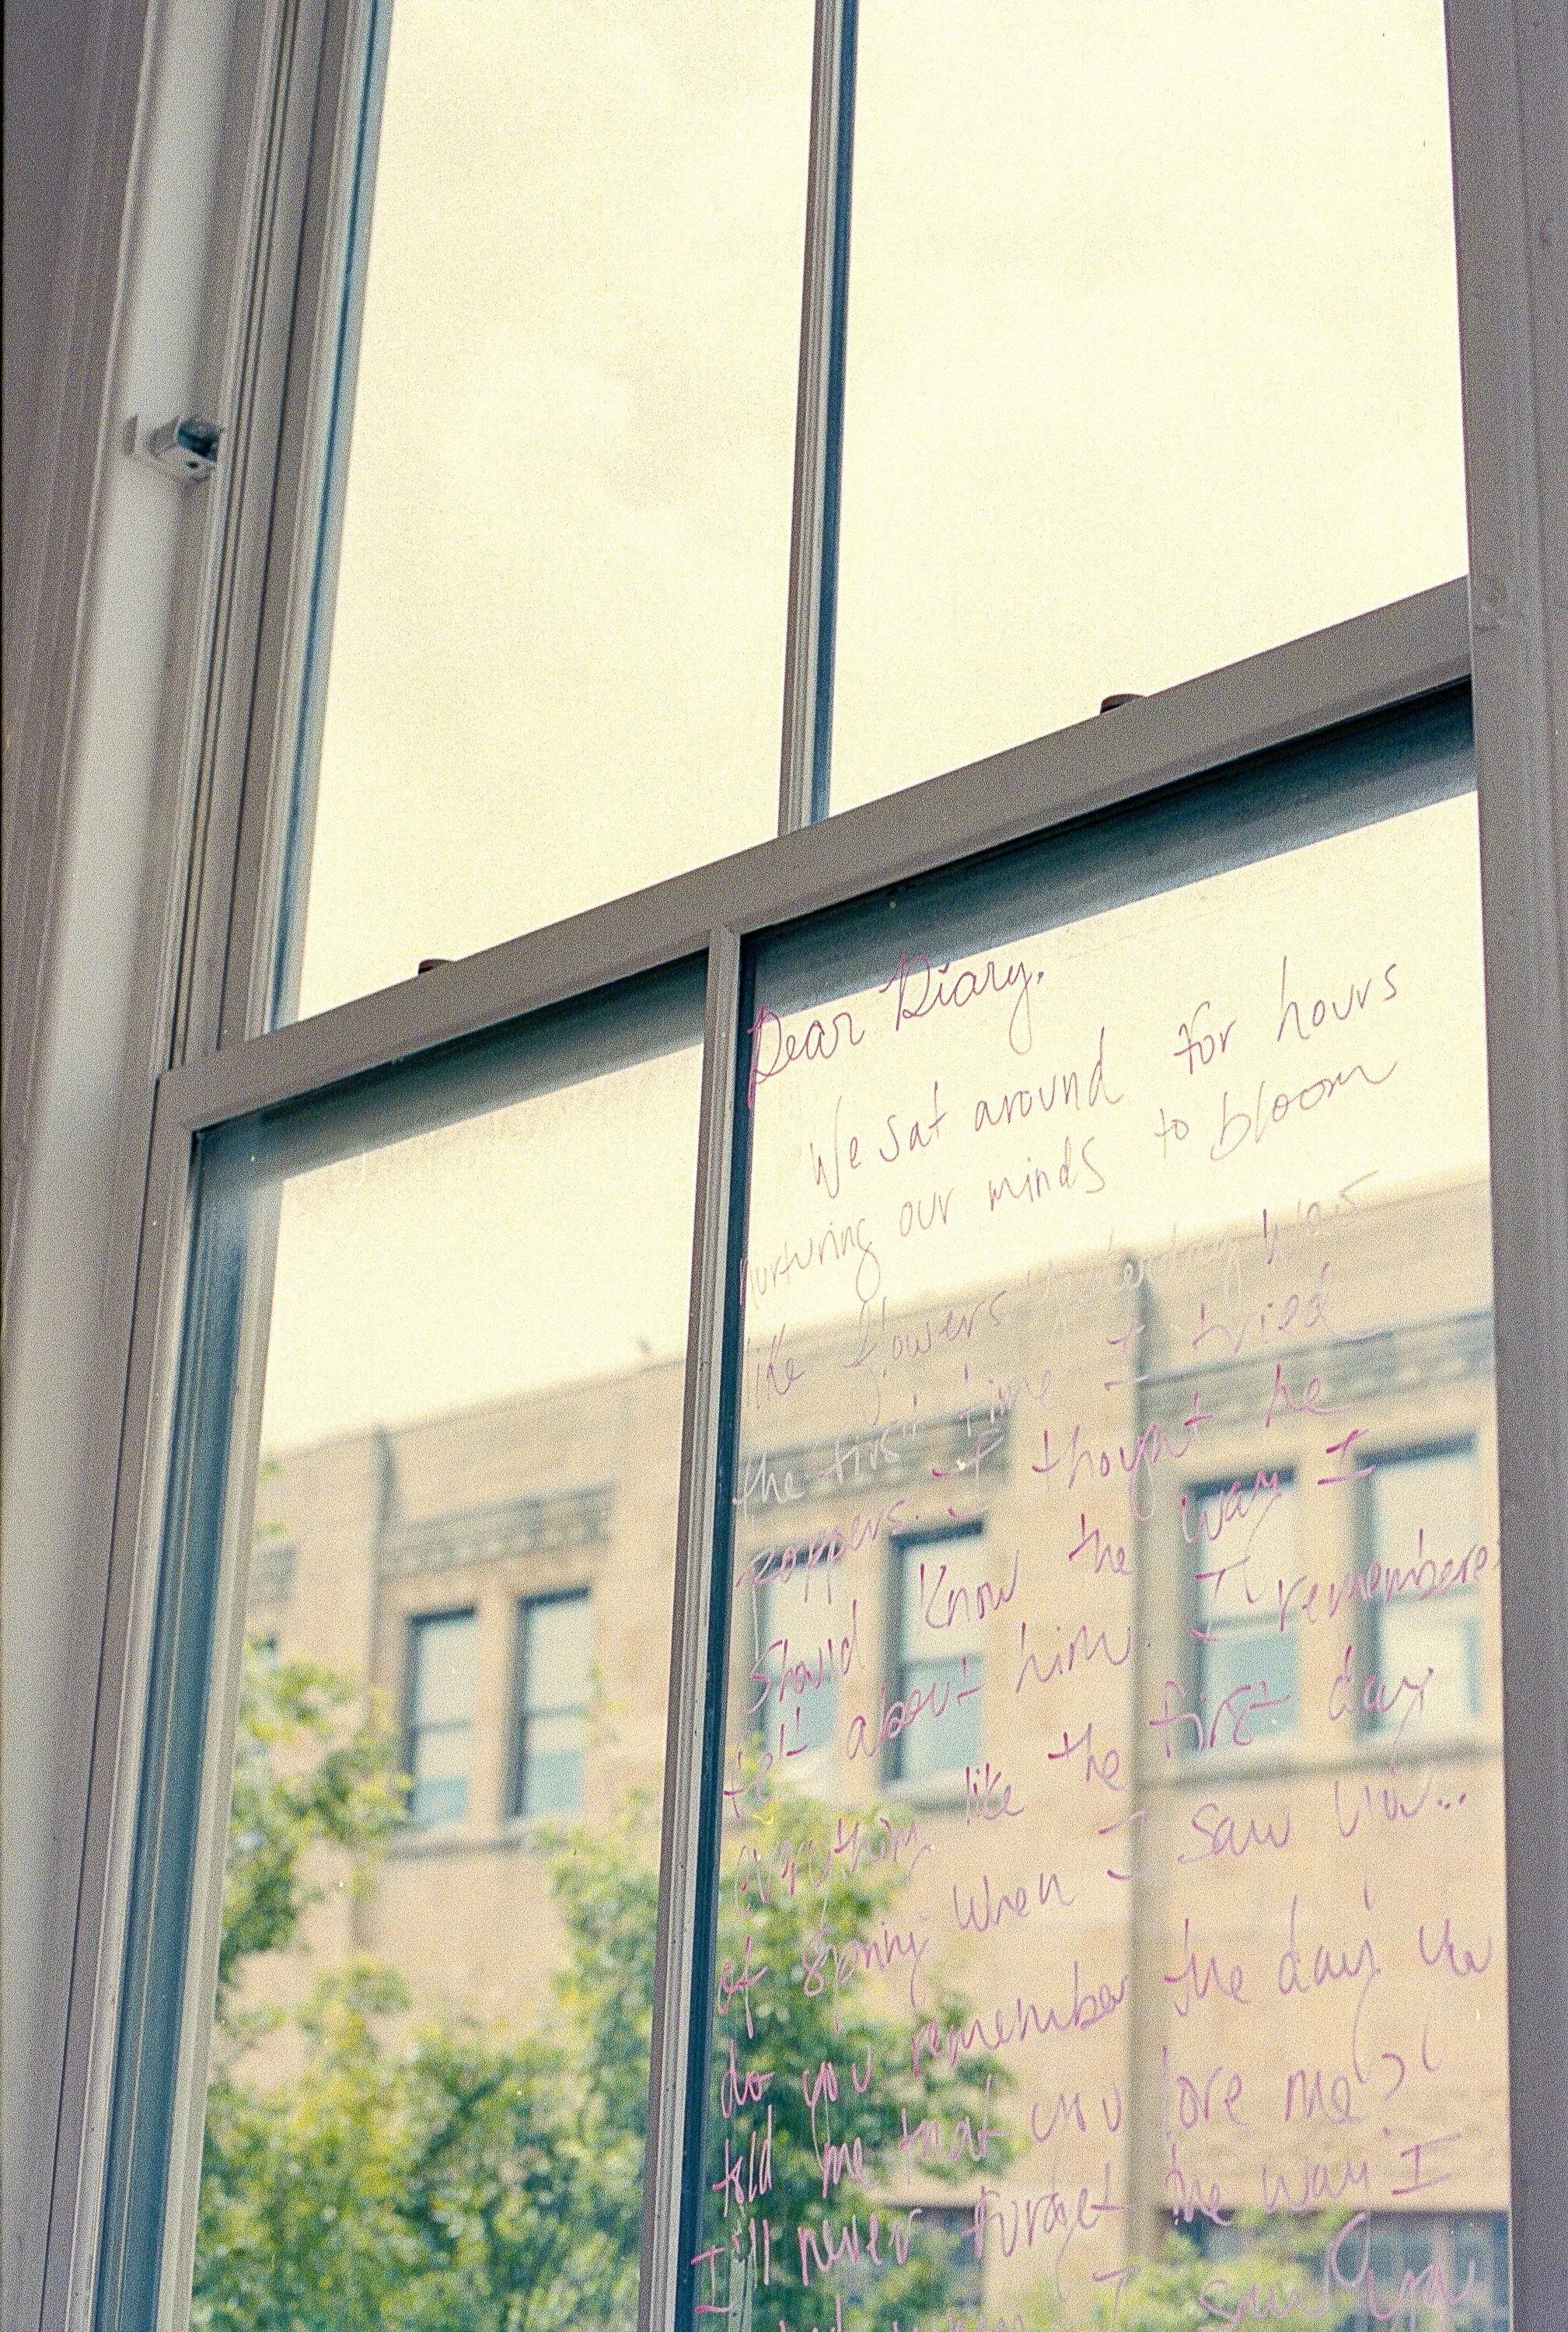 Dear Diary.
We sat around for hours
nurturing our minds to bloom
like flowers Yesterday was
the first time I tried
poppers. I thought he
should know the way I
felt about him. I remembered
everything like the first day
of spring when I saw him...
do you remember the day you
told me that you love me?
I'll never forget the way I
I saw you